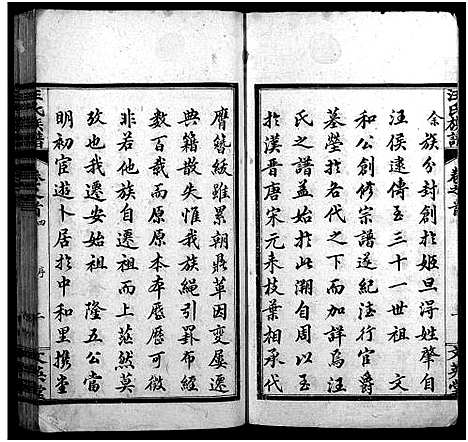 余族分封創於姬旦得姓肇自
汪侯逮傳五三十一世祖　文
和公創修宗譜遂紀法行官爵
墓塋於各代之下而加詳焉汪
氏之譜蓋始於溯自周以至
於漢晉唐宋元來枝葉相承代
膺紱綬雖累朝鼎革因變屢遷
典籍散失惟我族繩引罫布經
數百載而原原本本歷歷可微
非若他族自遷祖而上茫然莫
攷也我遷安始祖　隆五公當
明初宦遊卜居於中和里攜堂
汪氏族譜
卷之首
文英堂
汪氏族譜
卷之首
序